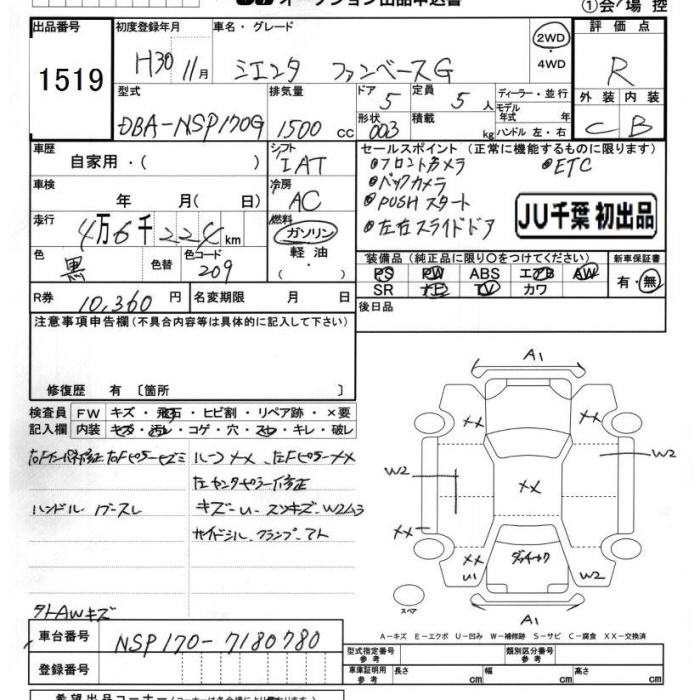 オークション出品申込書
①会場控
出品番号
1519
初度登録年月
H30 11月
車名・グレード
シエンタ ファンベースG
2WD
・
4WD
評価点
R
外装 内装
C B
型式
DBA-NSP170G
排気量
1500 cc
ドア 5
形状 003
定員 5 人
積載 kg
ディーラー・並行
モデル年式 年
ハンドル 左・右
車歴
自家用・( )
シフト
IAT
車検
年 月( 日)
冷房
AC
走行
4万6千224km
燃料
ガソリン
軽油
・( )
色
黒
色替
色コード
209
R券
10,360 円
名変期限 月 日
セールスポイント (正常に機能するものに限ります)
●フロントカメラ ●ETC
●バックカメラ
●PUSHスタート
●左右スライドドア
JU千葉 初出品
装備品 (純正品に限り○をつけてください)
新車保証書
PS PW ABS エアB AW
SR ナビ TV カワ
有・無
後日品
注意事項申告欄(不具合内容等は具体的に記入して下さい)
修復歴 有 〔箇所 〕
検査員記入欄
FW キズ・飛石・ヒビ割・リペア跡・×要
内装 キズ・汚レ・コゲ・穴・スレ・キレ・破レ
ルーフ××、左Fピラー××
左センターピラー修正
ハンドル
キズ-U-スンキズ、W2ム3
外AWキズ
A1
××
××
W2
W2
××
××
××
U1
W2
A1
スペア
A-キズ E-エクボ U-凹み W-補修跡 S-サビ C-腐食 XX-交換済
車台番号
NSP170-7180780
登録番号
型式指定番号 参考
類別区分番号 参考
車庫証明用 参考 長さ cm 幅 cm 高さ cm
希望出品コーナー